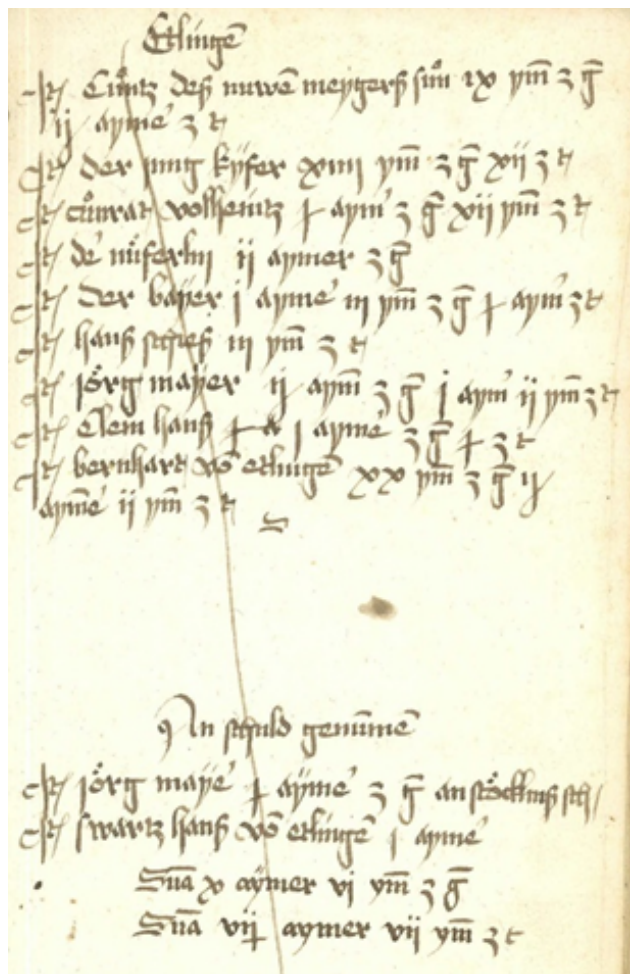 Etlingē
It Cuͦntz deß nuwē meygerß suͦn ix ym̄ z ḡ
ij aymē z t
It der jung kyfer xiiii ym̄ z ḡ xij z t
It cuͦnrat volheintz ɟ aym̄ z ḡ xij ym̄ z t
It de nuͤferlin ij aymer z ḡ
It Der bayer j aymē iii ym̄ z ḡ ɟ aym̄ z t
It hanß schieß iii ym̄ z t
It joͤrg mayer ij aym̄ z ḡ j aym̄ ij ym̄ z t
It Clem hanß ɟ j aymē z ḡ ɟ z t
It bernhart vō etlingē xx ym̄ z ḡ ij
aymē ii ym̄ z t
An schuld genūmē
It joͤrg mayē ɟ aymē z ḡ an stoͤcklinß sch
It swartz hanß vō etlingē j aymē
Sūa x aymer vi ym̄ z ḡ
Sūa vij aymer vii ym̄ z t